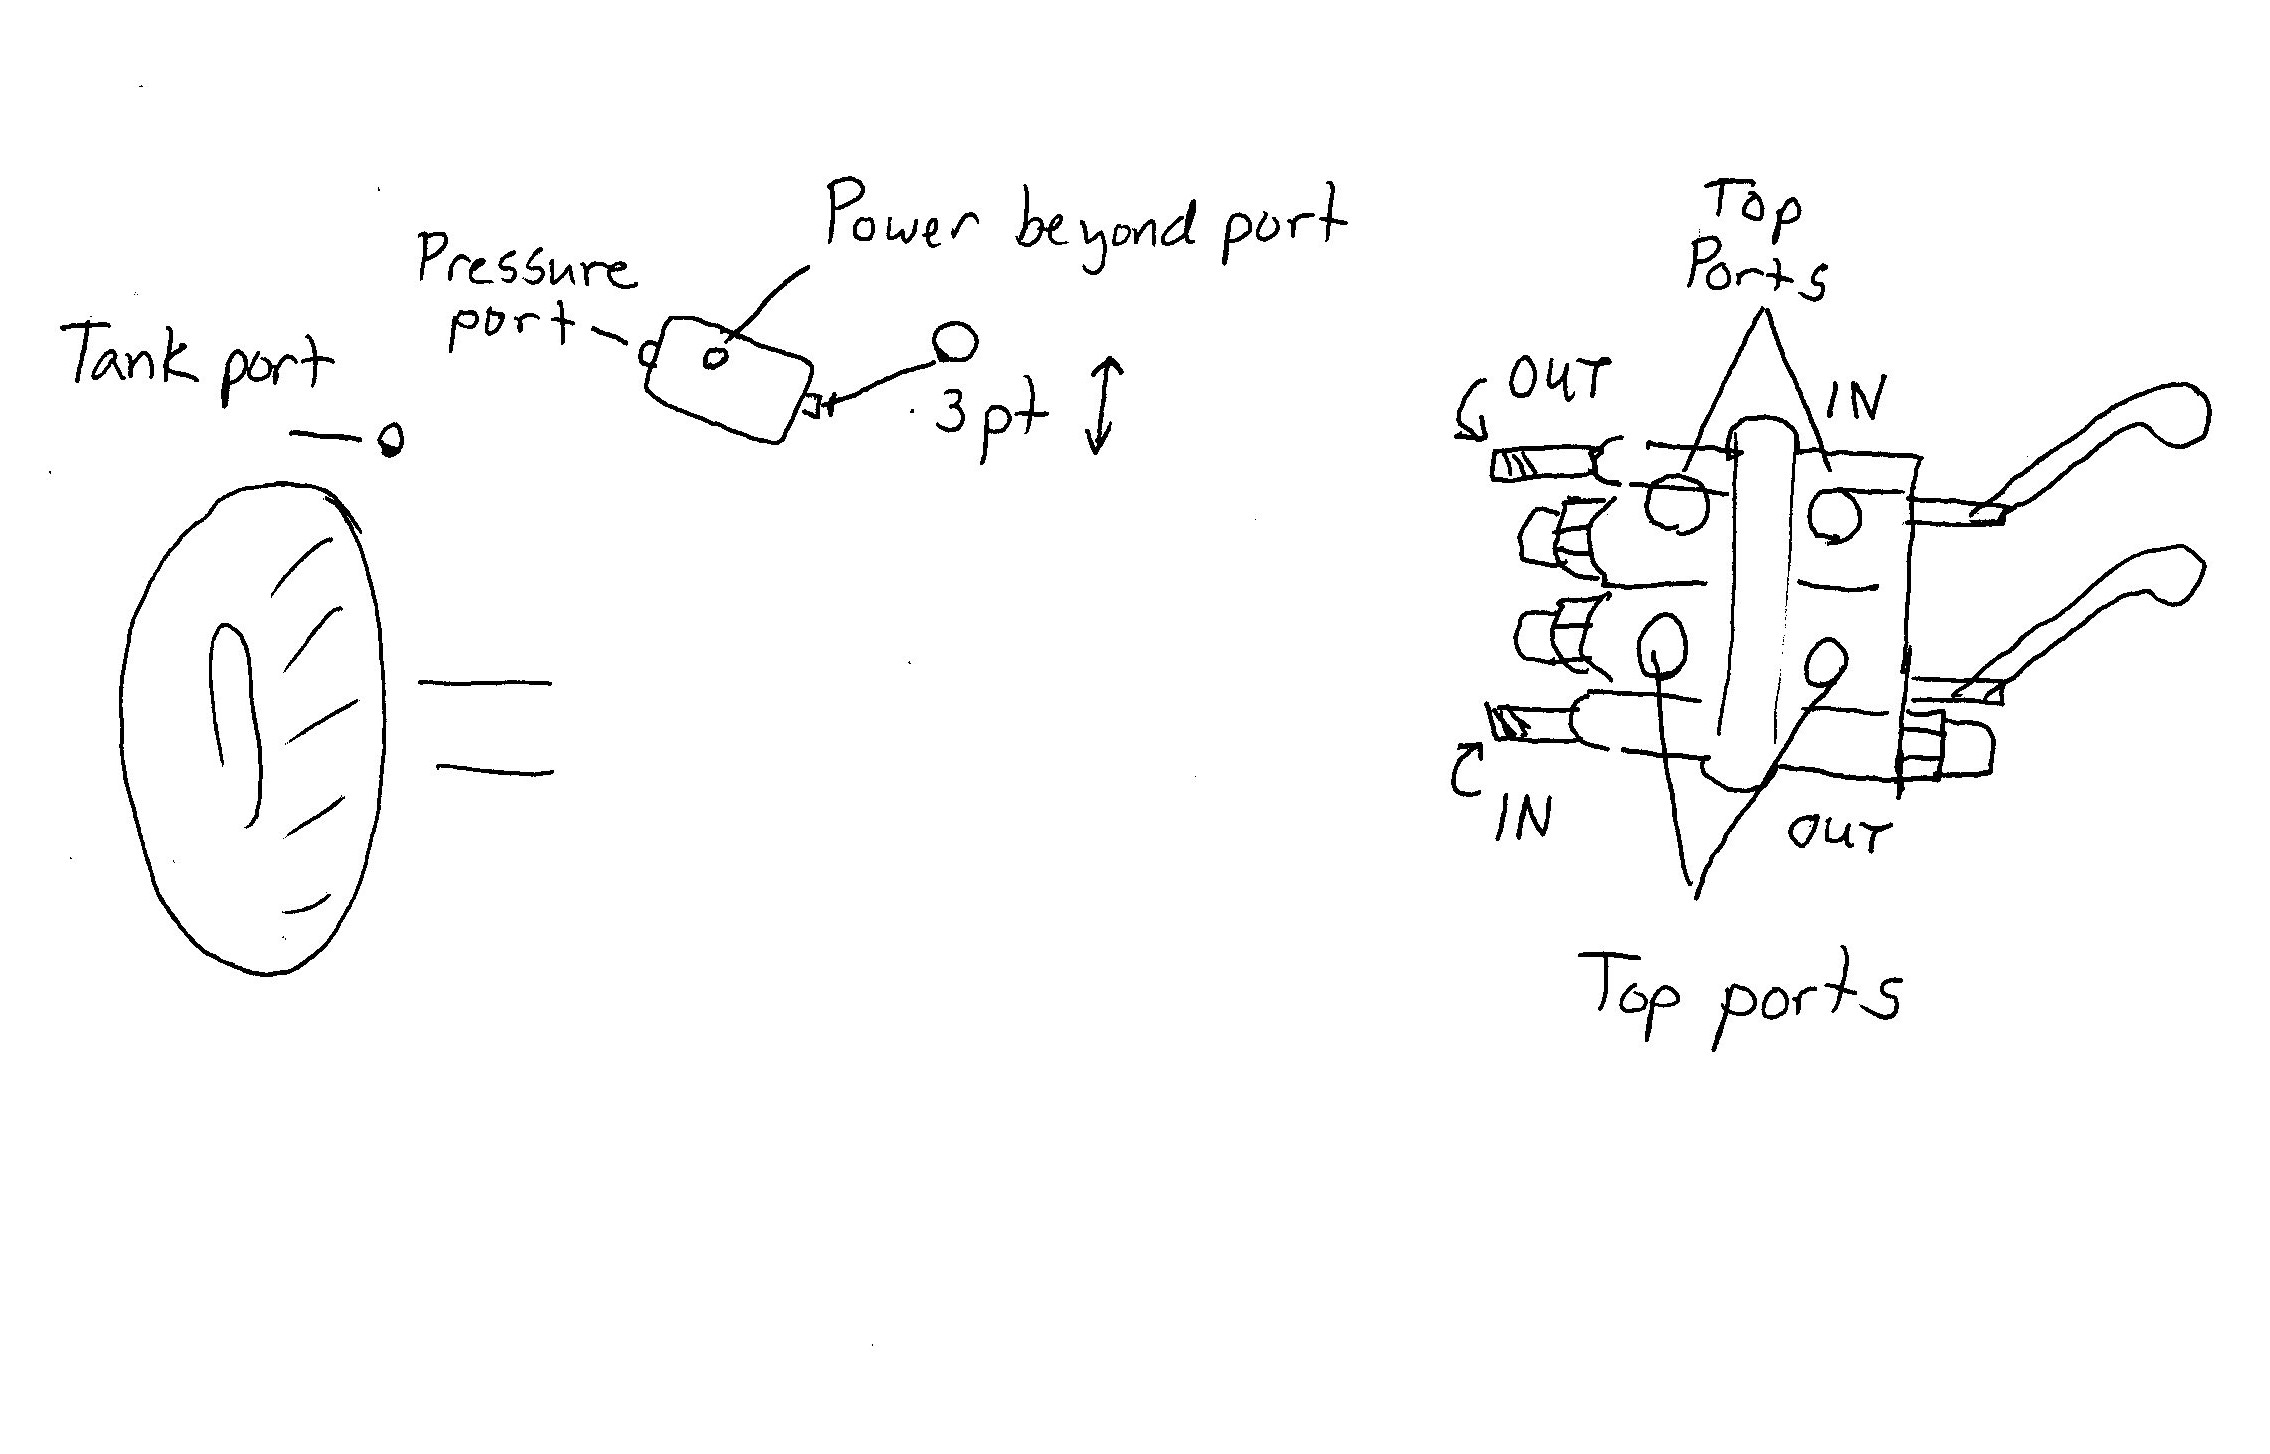 Tank port
Pressure
port
Power beyond port
3 pt
Top
Ports
OUT
IN
IN
OUT
Top ports